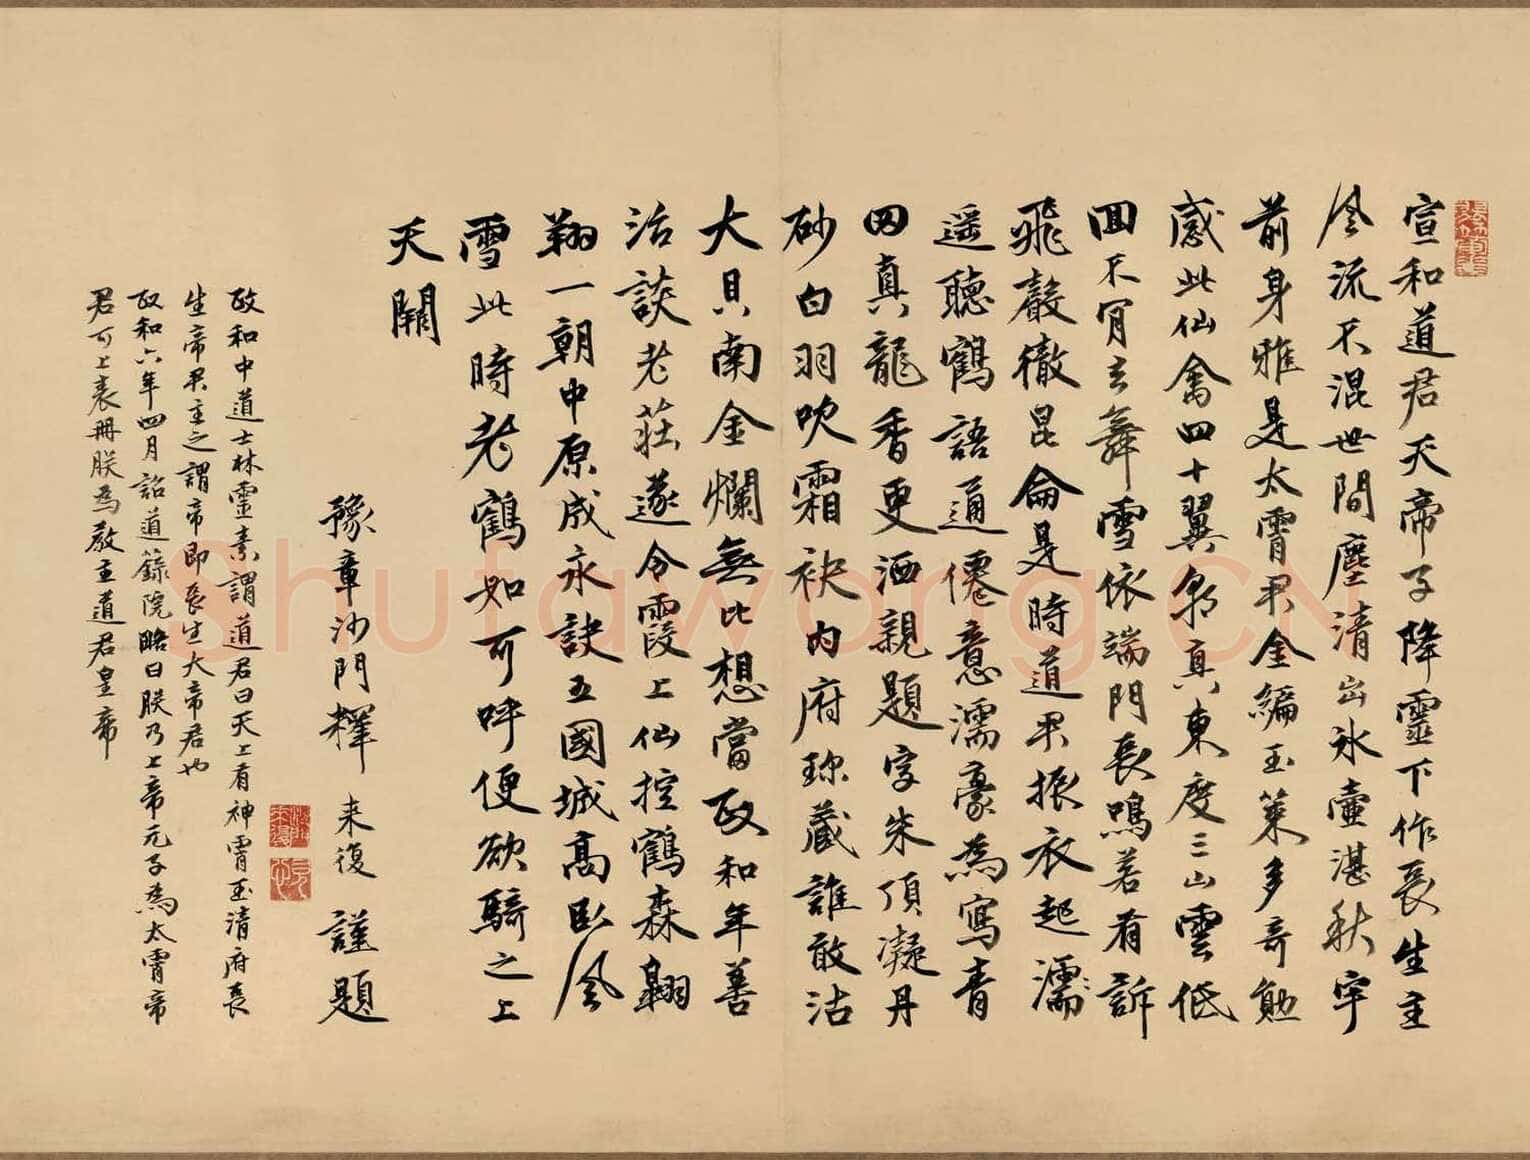 宣和道君天帝子降靈下作長生主
風流不混世間塵清出冰壺湛秋宇
前身雅是太霄君金編玉策多奇勛
感此仙禽四十翼朝真東度三山雲低
回不肯去舞雪依端門長鳴若有訴
飛聲徹昆侖是時道君振衣起濡
遥聽鶴語通僊意濡豪為寫青
田真龍香更洒親題字朱頂凝丹
砂白羽吹霜袂內府珎藏誰敢沽
大貝南金爛無比想當政和年善
治談老莊遂令霞上仙控鶴森翱
翔一朝中原成永訣五國城高臥風
雪此時老鶴如可呼便欲騎之上
天關
豫章沙門釋来復謹題
政和中道士林靈素謂道君曰天上有神霄玉清府長
生帝君主之謂帝即長生大帝君也
政和六年四月詔道籙院略曰朕乃上帝元子為太霄帝
君可上表冊朕為教主道君皇帝
Shufawang.CN